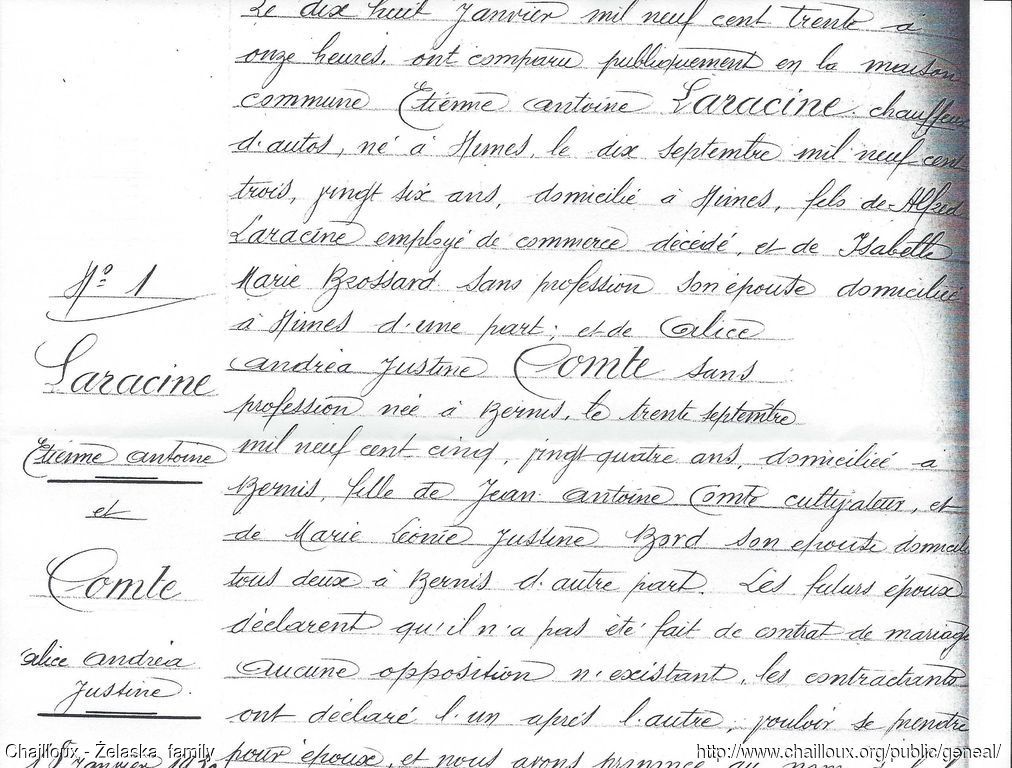 Le dix huit Janvier mil neuf cent trente à
onze heures, ont comparu publiquement en la maison
commune Etienne Antoine Laracine chauffeur
d'autos, né à Nimes, le dix septembre mil neuf cent
trois, vingt six ans, domicilié à Nimes, fils de Alfred
Laracine employé de commerce décédé, et de Isabelle
Marie Brossard sans profession son épouse domiciliée
à Nimes d'une part; et de Alice
Andréa Justine Comte sans
profession née à Bernis, le trente septembre
mil neuf cent cinq, vingt quatre ans, domiciliée à
Bernis, fille de Jean Antoine Comte cultivateur, et
de Marie Léonie Justine Bord son épouse domiciliés
tous deux à Bernis d'autre part. Les futurs époux
déclarent qu'il n'a pas été fait de contrat de mariage
Aucune opposition n'existant, les contractants
ont déclaré l'un après l'autre, vouloir se prendre
pour époux, et nous avons prononcé au nom
N° 1
Laracine
Etienne Antoine
et
Comte
Alice Andréa
Justine.
18 Janvier
Chailloux - Żelaska family
http://www.chailloux.org/public/geneal/